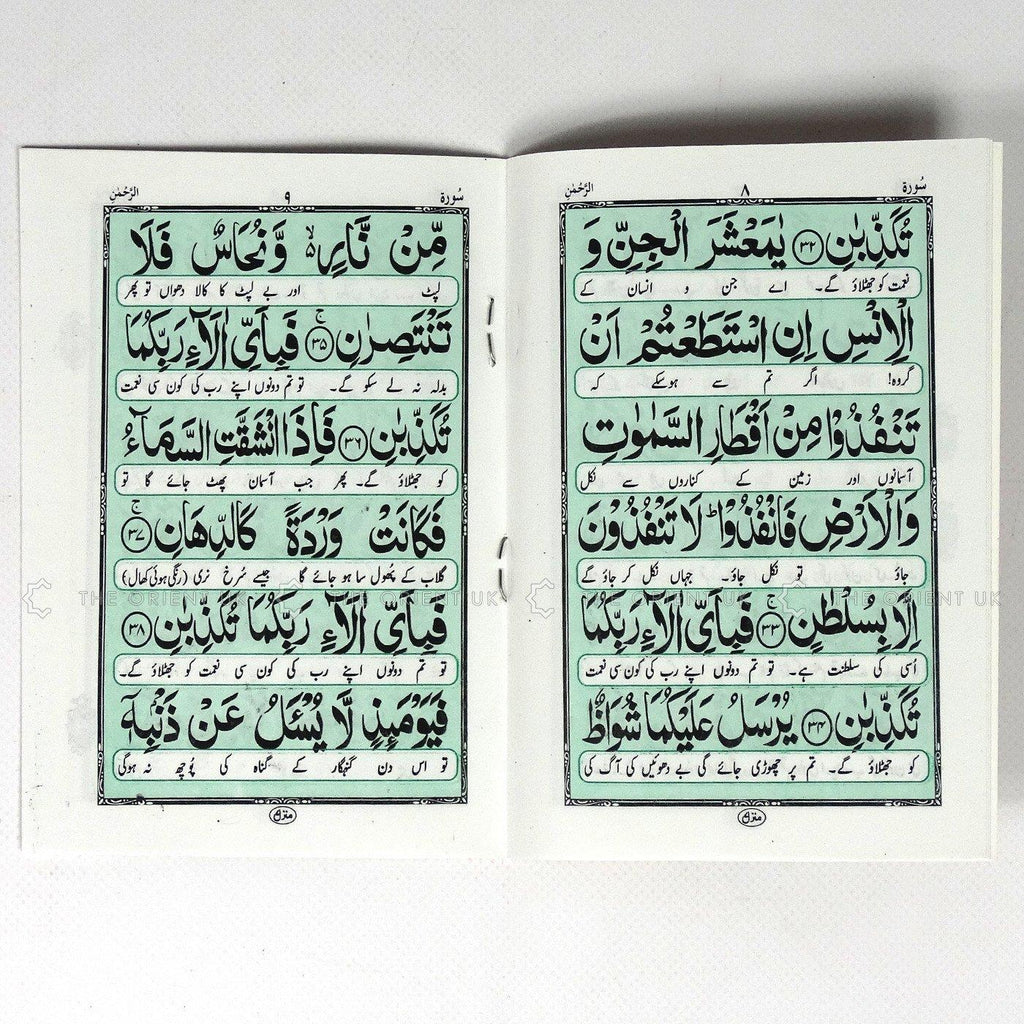 سُورة ٨ الرَّحْمٰن
تُكَذِّبٰنِ ﴿۳۲﴾ يٰمَعْشَرَ الْجِنِّ وَ
نعمت کو جھٹلاؤ گے۔ اے جن و انسان کے
الْاِنْسِ اِنِ اسْتَطَعْتُمْ اَنْ
گروہ! اگر تم سے ہوسکے کہ
تَنْفُذُوْا مِنْ اَقْطَارِ السَّمٰوٰتِ
آسمانوں اور زمین کے کناروں سے نکل
وَالْاَرْضِ فَانْفُذُوْا ؕ لَا تَنْفُذُوْنَ
جاؤ تو نکل جاؤ۔ جہاں نکل کر جاؤ گے
اِلَّا بِسُلْطٰنٍ ﴿۳۳﴾ ۚ فَبِاَيِّ اٰلَآءِ رَبِّكُمَا
اُسی کی سلطنت ہے۔ تو تم دونوں اپنے رب کی کون سی نعمت
تُكَذِّبٰنِ ﴿۳۴﴾ يُرْسَلُ عَلَيْكُمَا شُوَاظٌ
کو جھٹلاؤ گے۔ تم پر چھوڑی جائے گی بے دھوئیں کی آگ کی
منزل
سُورة ٩ الرَّحْمٰن
مِّنْ نَّارٍ ۙ۬ وَّنُحَاسٌ فَلَا
لپٹ اور بے لپٹ کا کالا دھواں تو پھر
تَنْتَصِرٰنِ ﴿۳۵﴾ ۚ فَبِاَيِّ اٰلَآءِ رَبِّكُمَا
بدلہ نہ لے سکو گے۔ تو تم دونوں اپنے رب کی کون سی نعمت
تُكَذِّبٰنِ ﴿۳۶﴾ فَاِذَا انْشَقَّتِ السَّمَآءُ
کو جھٹلاؤ گے۔ پھر جب آسمان پھٹ جائے گا تو
فَكَانَتْ وَرْدَةً كَالدِّهَانِ ﴿۳۷﴾ ۚ
گلاب کے پھول سا ہو جائے گا جیسے سُرخ نری (رنگی ہوئی کھال)
فَبِاَيِّ اٰلَآءِ رَبِّكُمَا تُكَذِّبٰنِ ﴿۳۸﴾
تو تم دونوں اپنے رب کی کون سی نعمت کو جھٹلاؤ گے۔
فَيَوْمَئِذٍ لَّا يُسْـَٔلُ عَنْ ذَنْۢبِهٖٓ
تو اس دن گنہگار کے گناہ کی پوُچھ نہ ہوگی
منزل
THE ORIENT UK THE ORIENT UK THE ORIENT UK